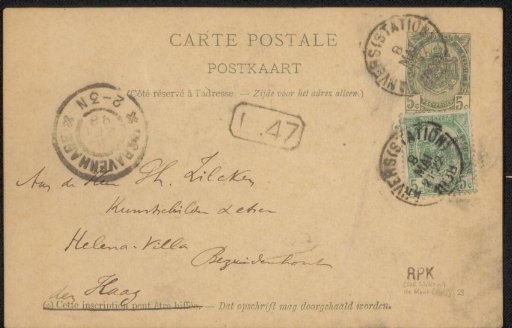 CARTE POSTALE
POSTKAART
(Côté réservé à l'adresse. — Zijde voor het adres alleen.)
ANVERS (STATION)
8
5c 5c
ANVERS (STATION)
8
5c
'S GRAVENHAGE
2-3N
L.47
Aan de Heer Ph. Zilcken
Kunstschilder
Helena-Villa
Bezuidenhout
den Haag
(a) Cette inscription peut être biffée. — Dat opschrift mag doorgehaald worden.
RPK